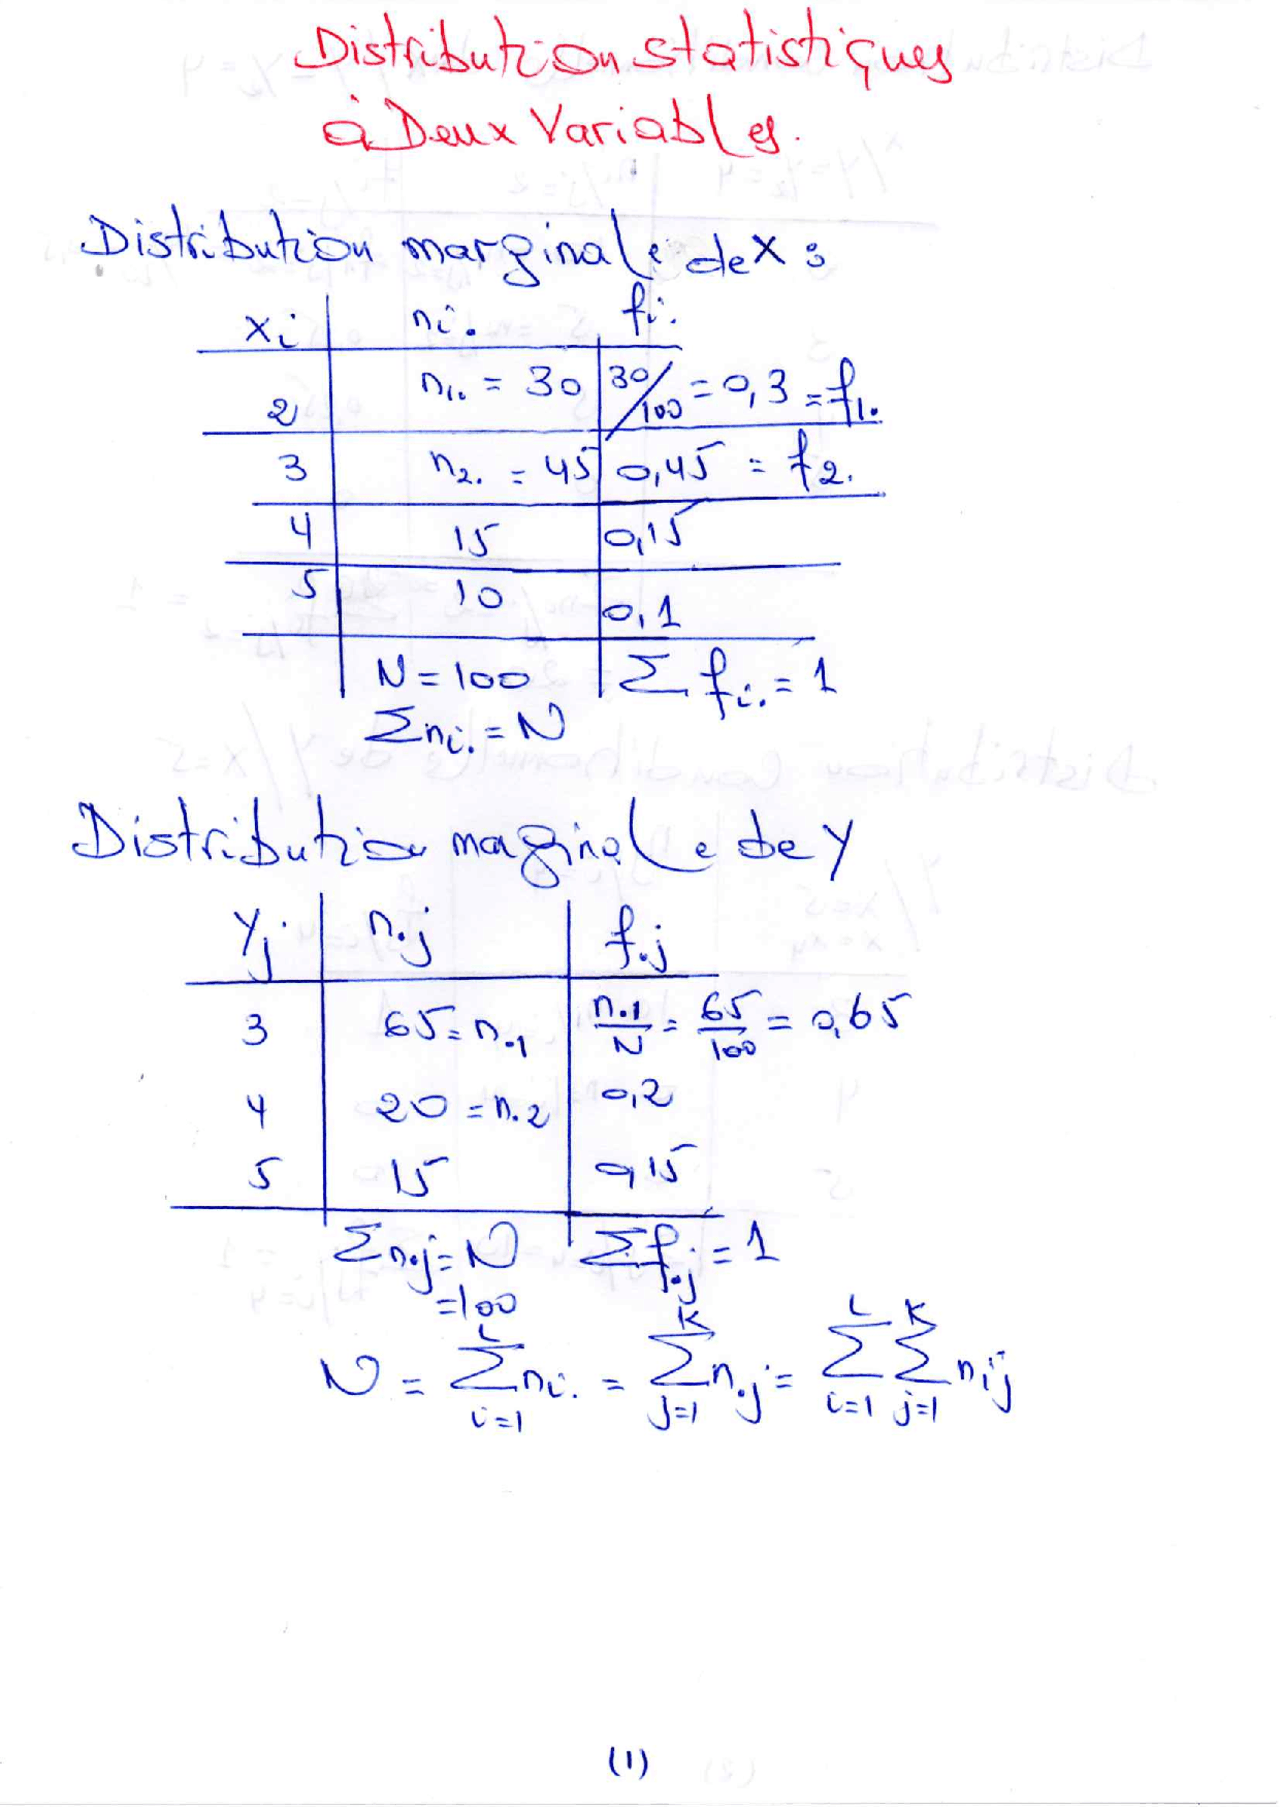 Distribution statistiques
à Deux Variables.
Distribution marginale de X :
xi | ni. | fi.
2 | n1. = 30 | 30/100 = 0,3 = f1.
3 | n2. = 45 | 0,45 = f2.
4 | 15 | 0,15
5 | 10 | 0,1
N = 100 | Σ fi. = 1
Σ ni. = N
Distribution marginale de Y
Yj | n.j | f.j
3 | 65 = n.1 | n.1/N = 65/100 = 0,65
4 | 20 = n.2 | 0,2
5 | 15 | 0,15
Σ n.j = N | Σ f.j = 1
= 100
N = Σ_{i=1}^{L} ni. = Σ_{j=1}^{K} n.j = Σ_{i=1}^{L} Σ_{j=1}^{K} nij
(1)